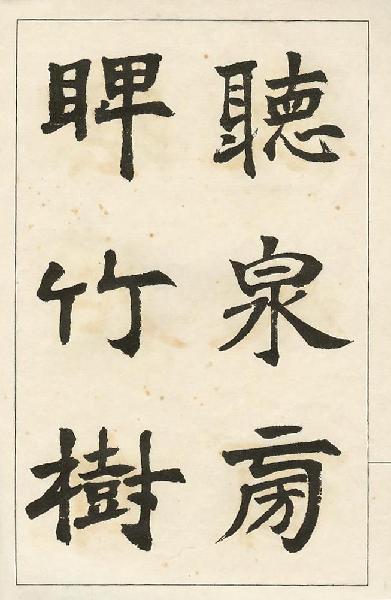 聽泉房
睥竹樹